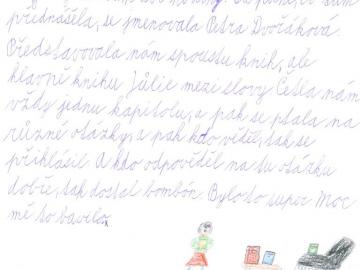 přednášela, se jmenovala Petra Dvořáková.
Představovala nám spoustu knih, ale
hlavně knihu Julie mezi slovy Četla nám
vždy jednu kapitolu, a pak se ptala na
různé otázky, a pak kdo věděl, tak se
přihlásil. A kdo odpověděl na tu otázku
dobře, tak dostal bombón. Bylo to super Moc
mě to bavilo.